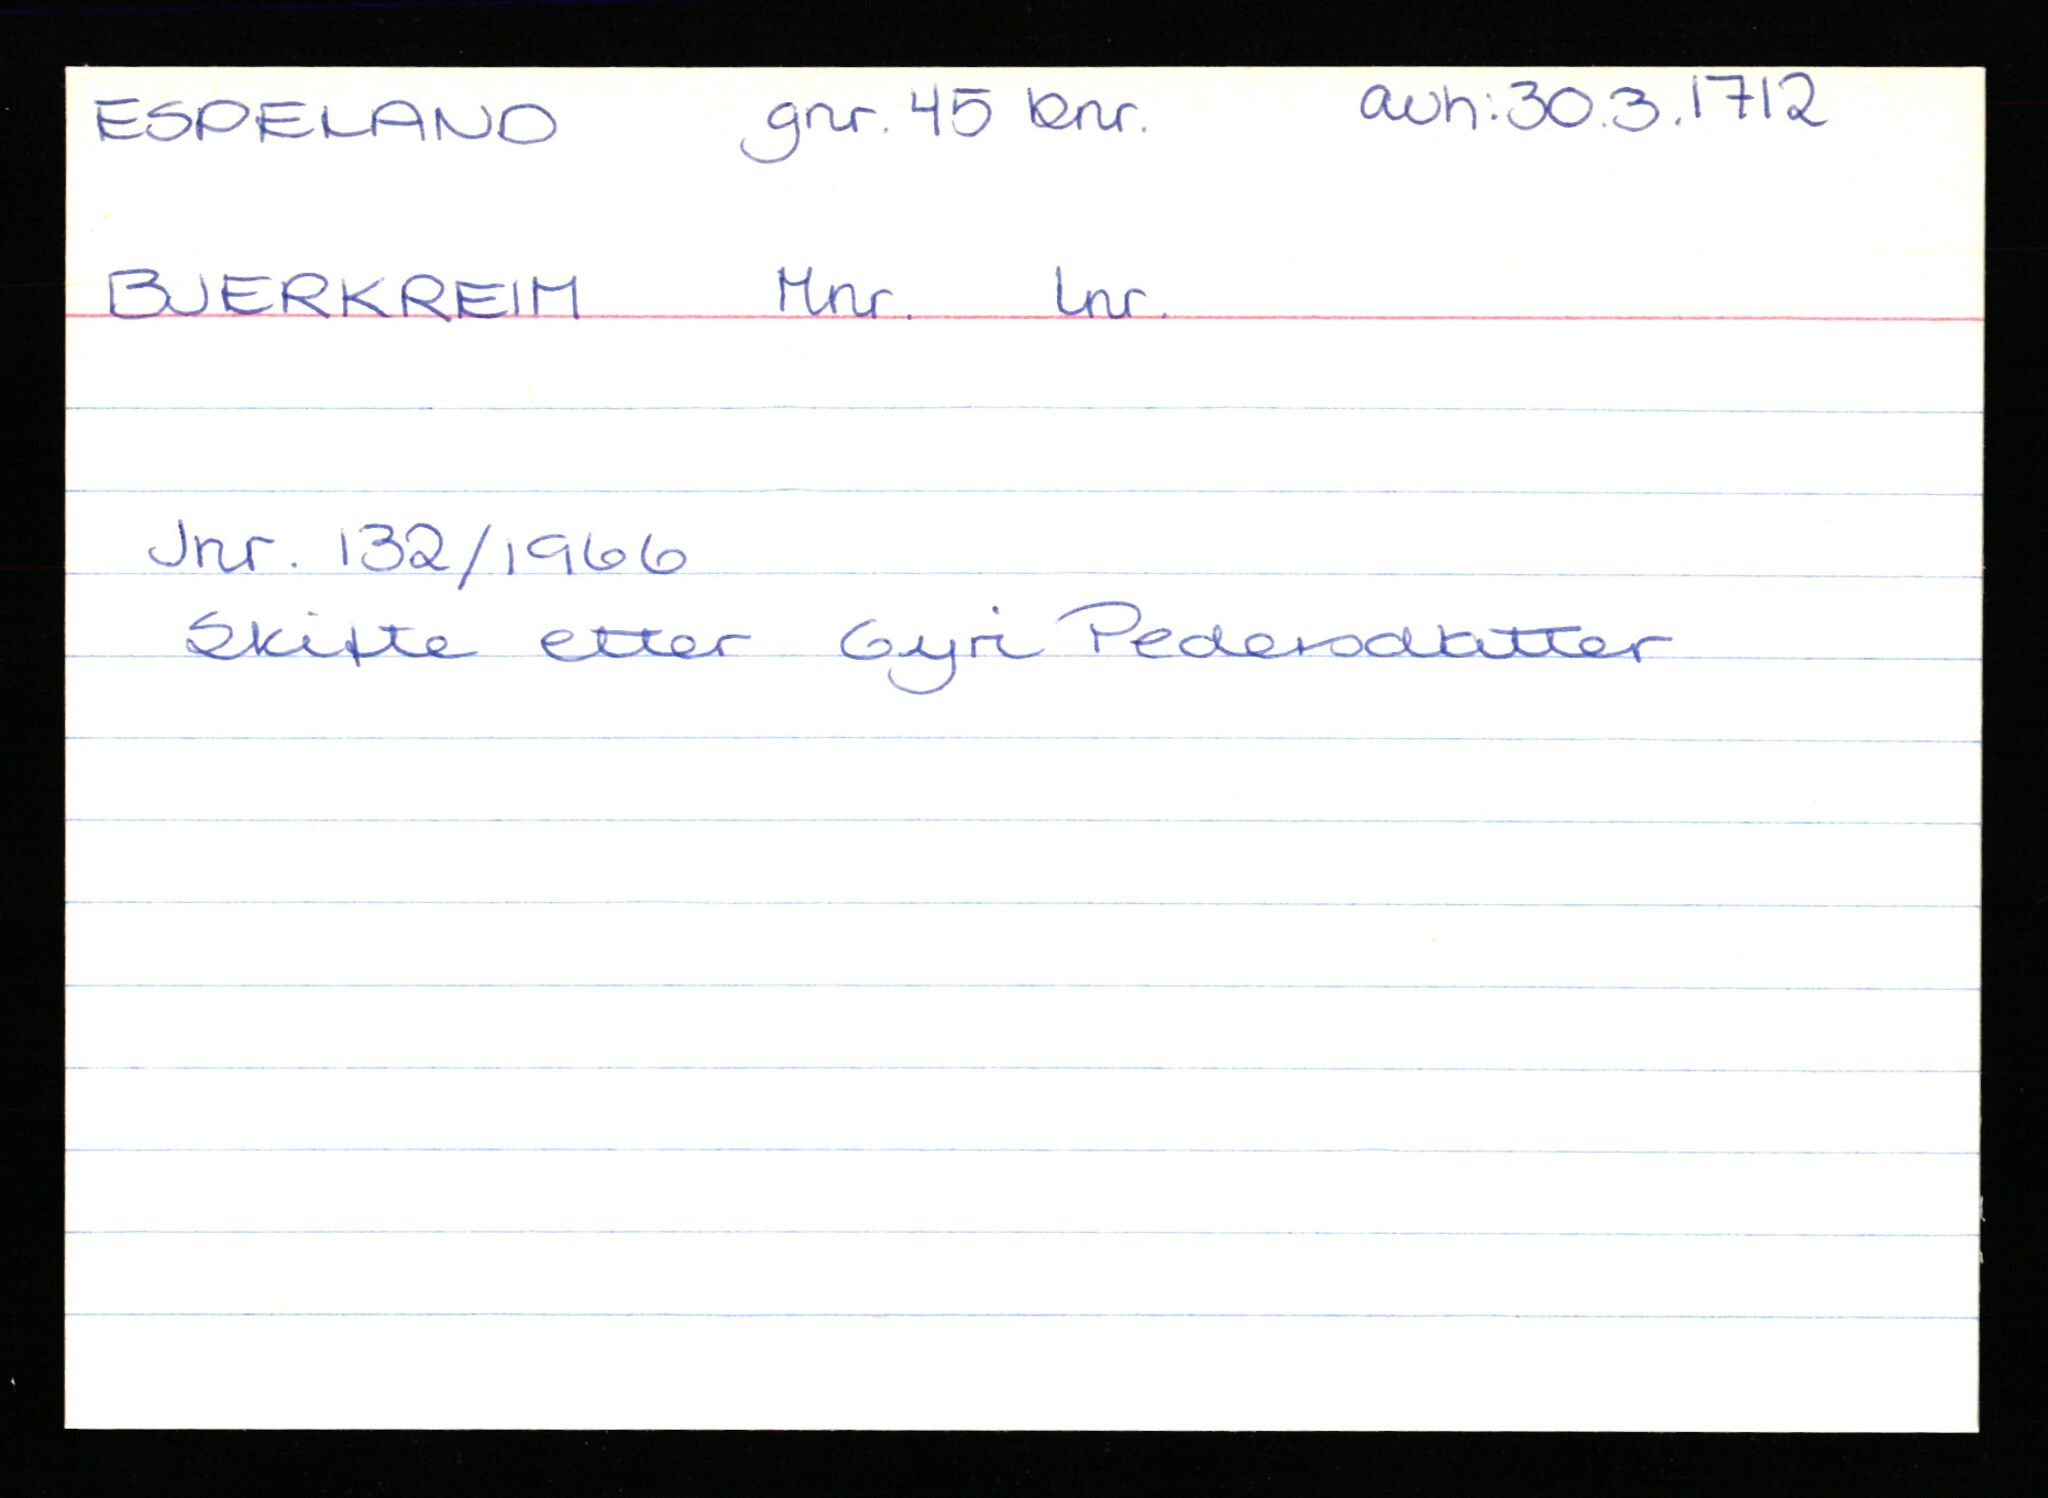 ESPELAND gnr. 45 bnr. avh: 30.3.1712
BJERKREIM Mnr. Lnr.
Jnr. 132/1966
Skifte etter Gyri Pedersdatter